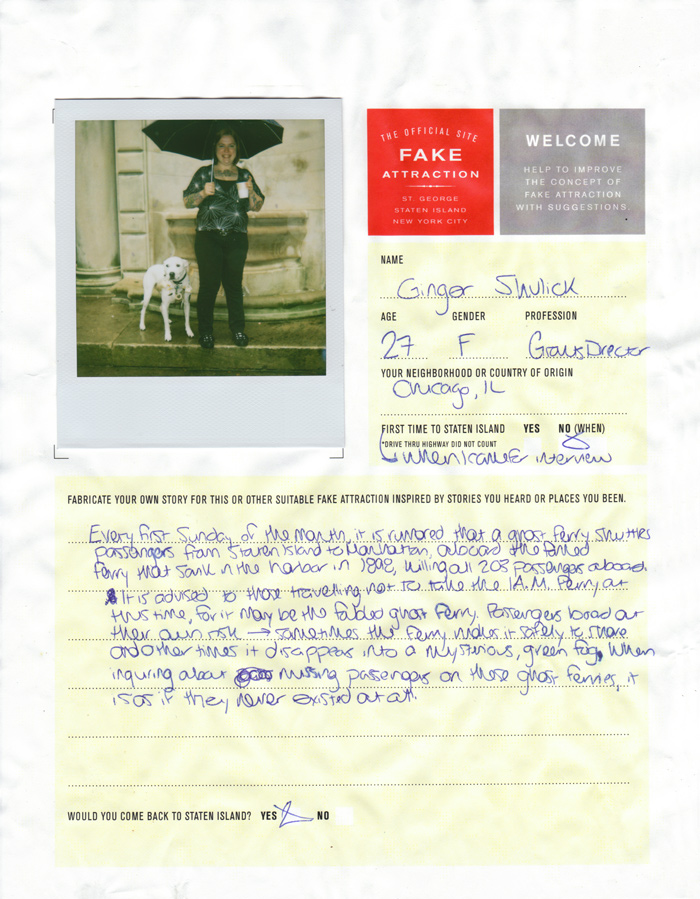 THE OFFICIAL SITE
FAKE
ATTRACTION
ST. GEORGE
STATEN ISLAND
NEW YORK CITY
WELCOME
HELP TO IMPROVE
THE CONCEPT OF
FAKE ATTRACTION
WITH SUGGESTIONS.
NAME
Ginger Shulick
AGE GENDER PROFESSION
27 F Grants Director
YOUR NEIGHBORHOOD OR COUNTRY OF ORIGIN
Chicago, IL
FIRST TIME TO STATEN ISLAND YES NO (WHEN)
*DRIVE THRU HIGHWAY DID NOT COUNT
When I came for interview
FABRICATE YOUR OWN STORY FOR THIS OR OTHER SUITABLE FAKE ATTRACTION INSPIRED BY STORIES YOU HEARD OR PLACES YOU BEEN.
Every first Sunday of the month, it is rumored that a ghost ferry shuttles
passengers from Staten Island to Manhattan, aboard the famed
ferry that sank in the harbor in 1892, killing all 203 passengers aboard.
It is advised to those travelling not to take the 1 A.M. Ferry at
this time, for it may be the fabled ghost ferry. Passengers board at
their own risk → sometimes the ferry makes it safely to shore
and other times it disappears into a mysterious, green fog. When
inquiring about missing passengers on these ghost ferries, it
is as if they never existed at all.
WOULD YOU COME BACK TO STATEN ISLAND? YES NO